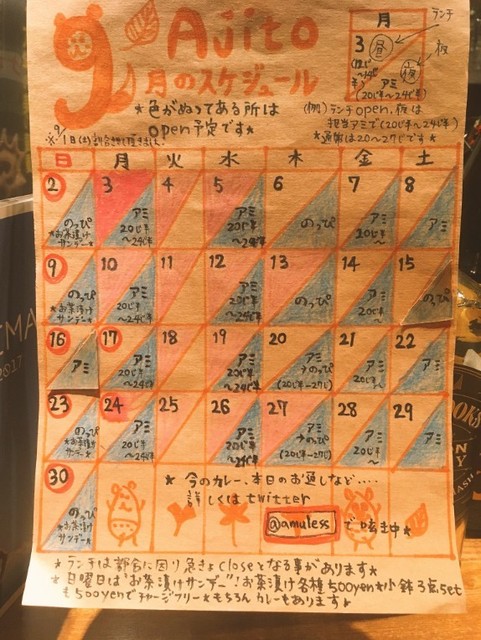 Ajito
9月のスケジュール
★色がぬってある所は
open予定です★
月
3
昼
夜
アミ
(20じ半〜24じ半)
ランチ
夜
(例)ランチopen、夜は
担当アミで(20じ半〜24じ半)
★通常は20〜27じです★
日 月 火 水 木 金 土
2 3 4 5 6 7 8
のっぴ
★お茶漬け
サンデー★
アミ
20じ半
〜24じ半
アミ
20じ半
〜24じ半
のっぴ
アミ
20じ〜
アミ
9 10 11 12 13 14 15
のっぴ
★お茶漬け
サンデー★
アミ
20じ半
〜24じ半
アミ
20じ半
〜24じ半
のっぴ
アミ
20じ半
〜24じ半
のっぴ
16 17 18 19 20 21 22
アミ
アミ
20じ半
〜24じ半
アミ
20じ半
〜24じ半
アミ
→のっぴ
(20じ半〜27じ)
アミ
20じ〜
アミ
23 24 25 26 27 28 29
のっぴ
★お茶漬け
サンデー★
アミ
20じ半
〜24じ半
アミ
20じ半
〜24じ半
アミ
→のっぴ
(20じ半〜27じ)
アミ
20じ半
〜
アミ
30
のっぴ
★お茶漬け
サンデー★
★今のカレー、本日のお通しなど.....
詳しくはtwitter
@amuless で呟き中★
★ランチは都合に因り急きょcloseとなる事があります★
★日曜日は"お茶漬けサンデー":お茶漬け各種500yen★小鉢3点set
も500yenでチャージフリー★もちろんカレーもあります♪